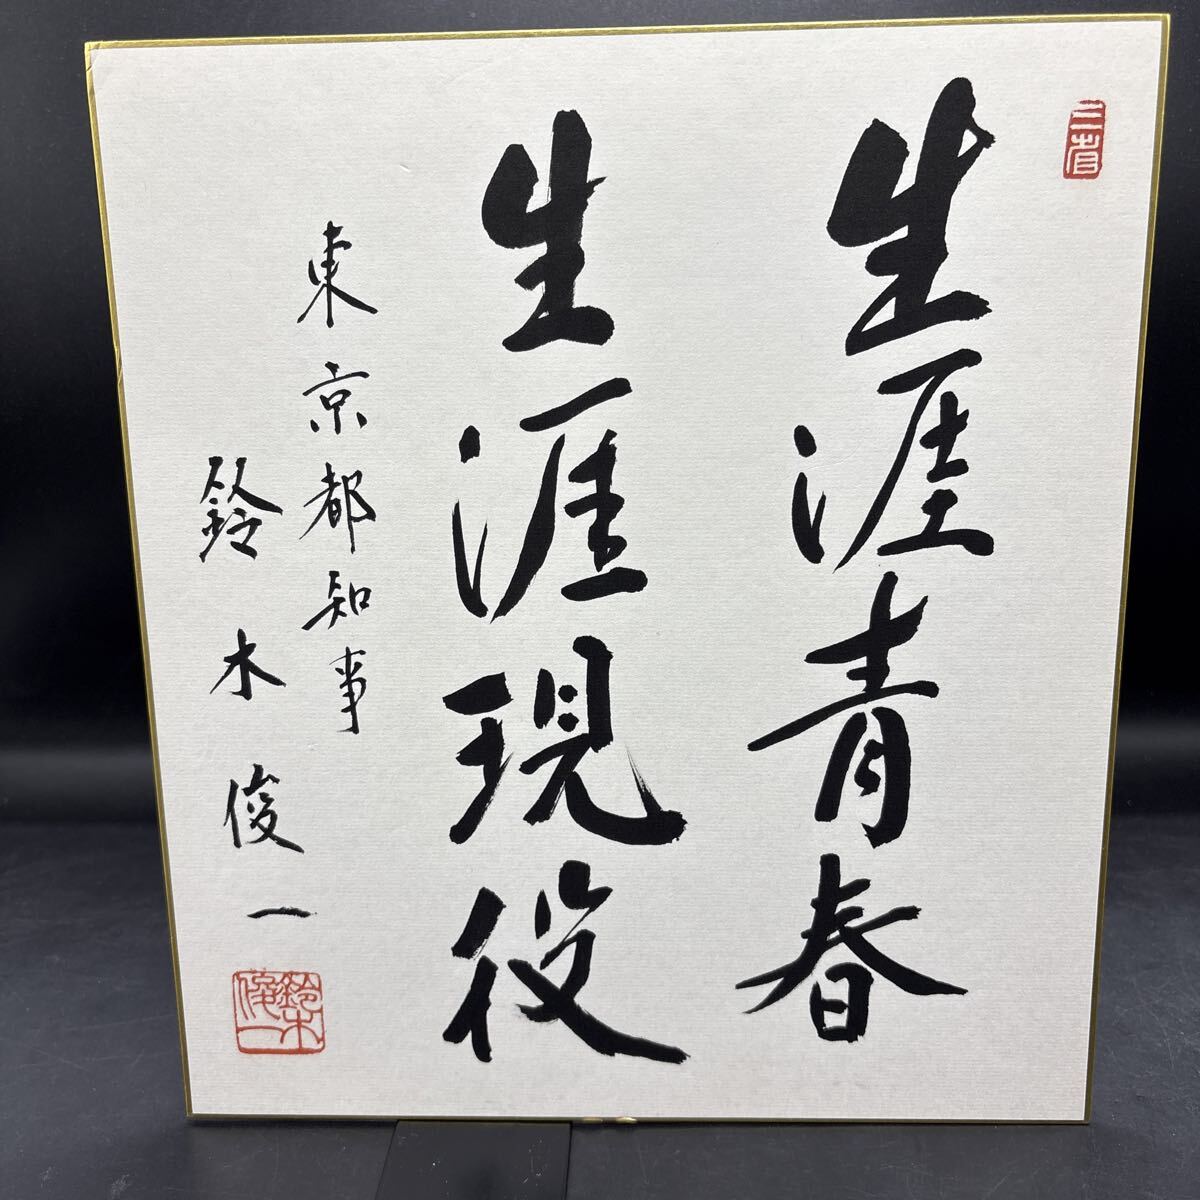 生涯青春
生涯現役
東京都知事
鈴木俊一
鈴木
俊一